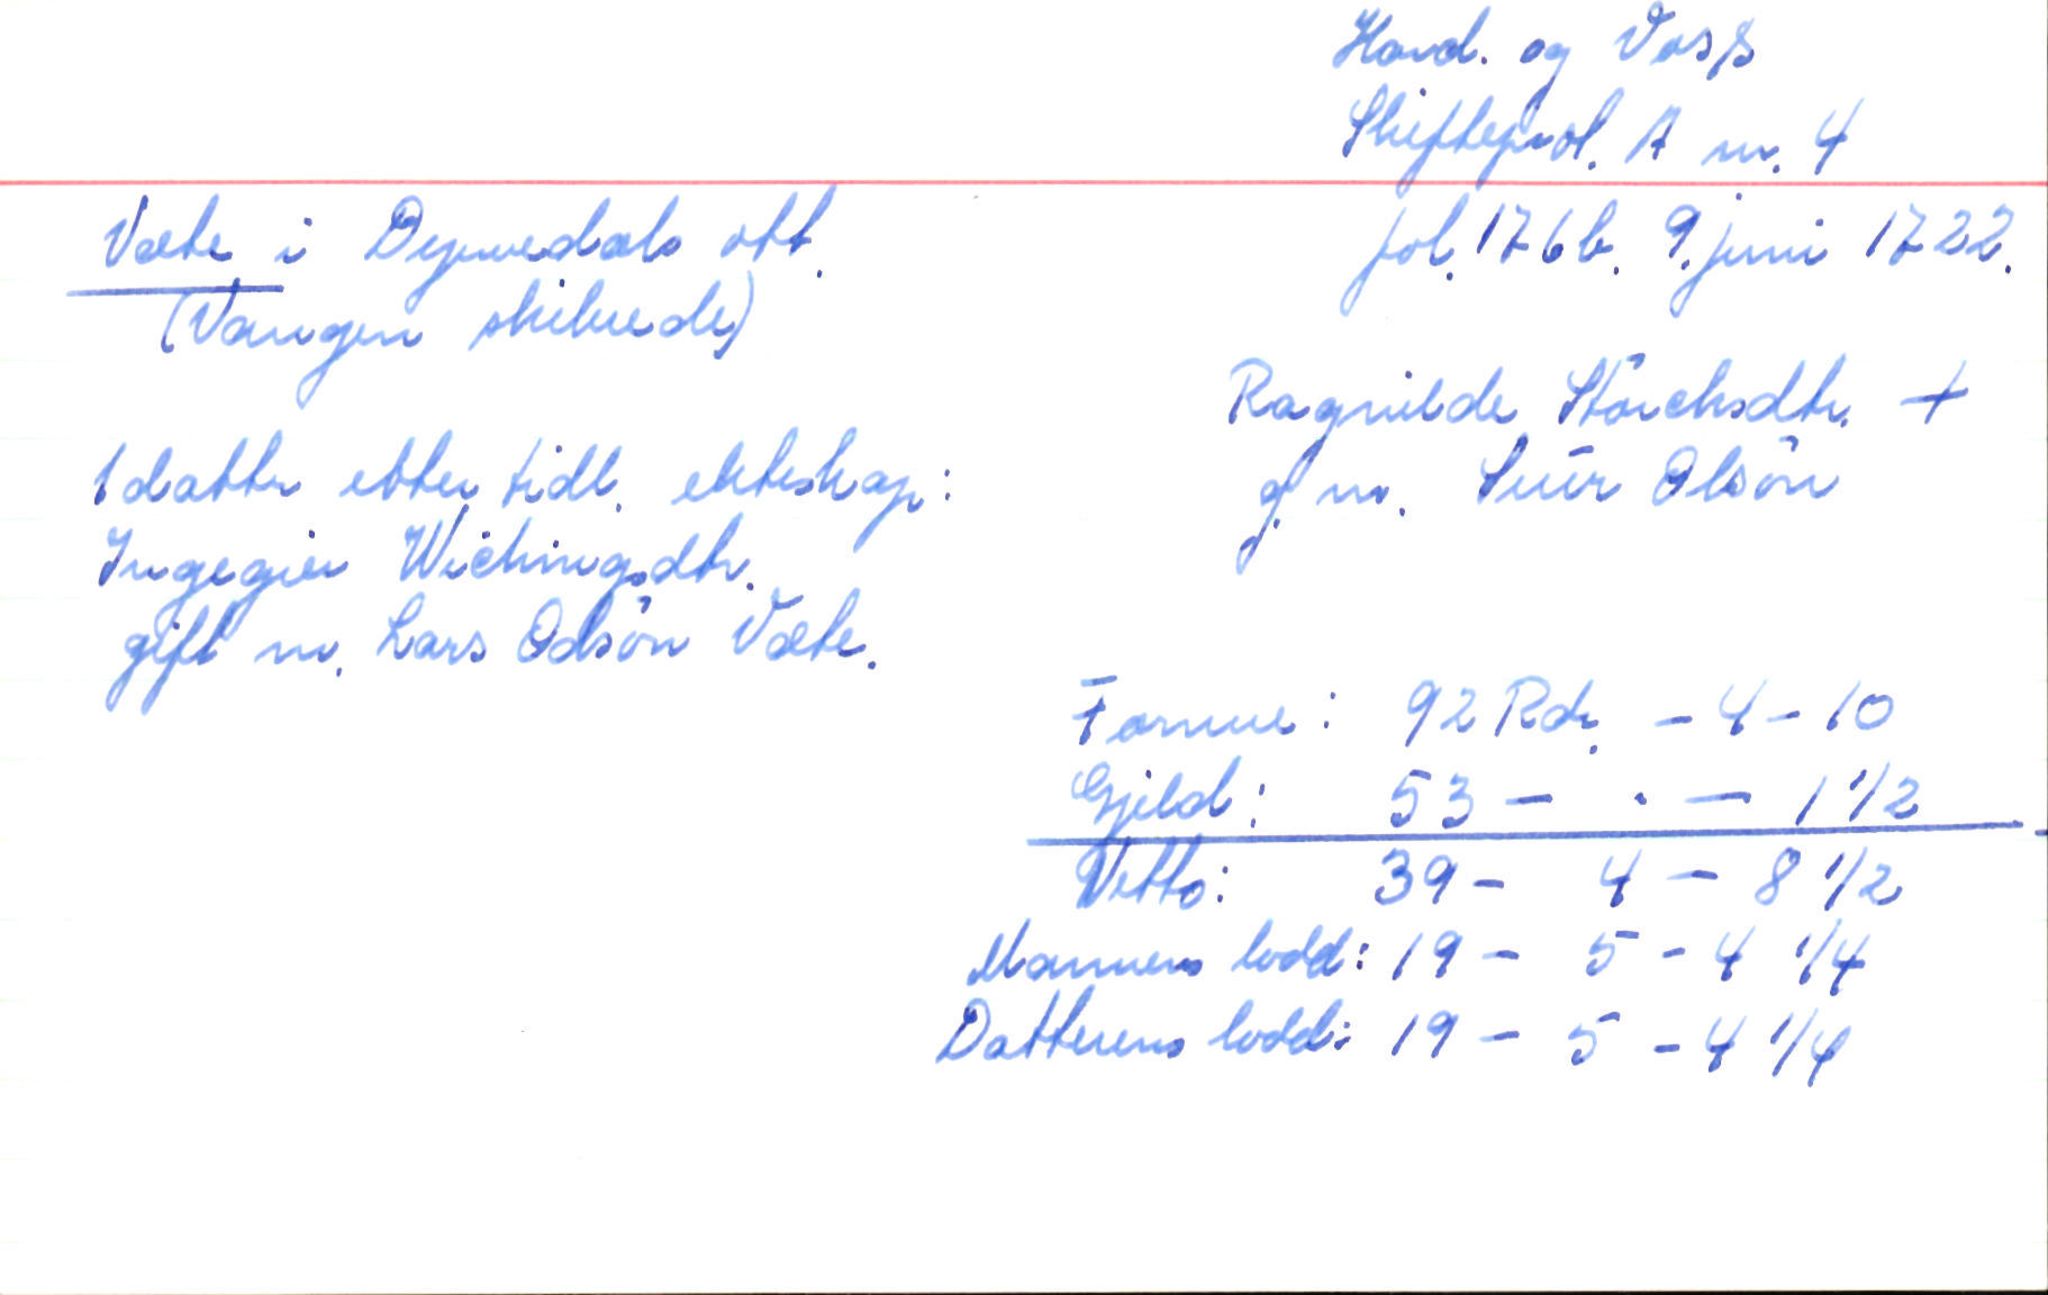 Hard. og Voss
Skifteprot. A nr. 4
fol. 176b. 9. juni 1722.
Væte i Dyrvedals ott.
(Vangen skibrede)
Ragnilde Storchsdtr. +
g. m. Siur Olsön
1 datter etter tidl. ekteskap:
Ingegier Wichingsdtr.
gift m. Lars Odsön Væte.
Formue: 92 Rdr. - 4 - 10
Gjeld: 53 - . - 1 1/2
Netto: 39 - 4 - 8 1/2
Mannens lodd: 19 - 5 - 4 1/4
Datterens lodd: 19 - 5 - 4 1/4